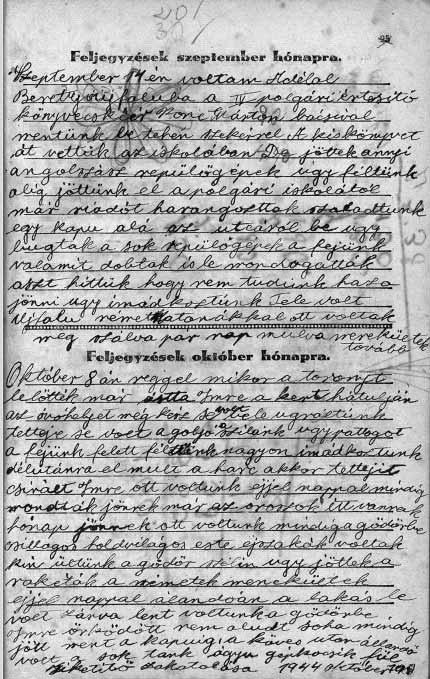 Feljegyzések szeptember hónapra.
Szeptember 14én voltam
Berettyóujfaluba a IV polgári értesitő
könyvecskéér Konc Márton bácsival
mentünk be tehén szekerrel A kiskönyvet
át vettük az iskolában De jöttek annyi
angolszász repülőgépek ugy féltünk
alig jöttünk el a polgári iskolától
már riadót harangoztak szaladtunk
egy kapu alá az utcáról be ugy
bugtak a sok repülőgépek a fejünk
valamit dobtak is le mondogatták
aszt hittük hogy nem tudunk haza
jönni ugy imádkoztunk Tele volt
Ujfalu német katonákkal ott voltak
meg szálva pár nap mulva menekültek
tovább
Feljegyzések október hónapra.
Október 8án reggel mikor a tornyot
lelőtték már ástta Imre a kert hátulján
az óvóhelyet még kész se volt bele ugráltunk
tetteje se volt a goljó szilánk ugy patogot
a fejünk felett féltünk nagyon imádkoztunk
délutánra el mult a harc akkor tettejit
csinált Imre ott voltunk éjjel nappal mindig
mondták jönnek már az oroszok itt vannak
hónap jönnek ott voltunk mindig a gödörbe
csillagos holdvilágos este éjszakák voltak
kin ültünk a gödör szélin ugy jöttek a
rakéták a németek menekültek
éjjel nappal álandóan a lakás le
volt zárva lent voltunk a gödörbe
Imre örködött nem aludt soha mindig
jött ment a kapuig a köves uton állandó
volt a sok tank ágyu gépkocsik
siketitő zakatolása 1944 október